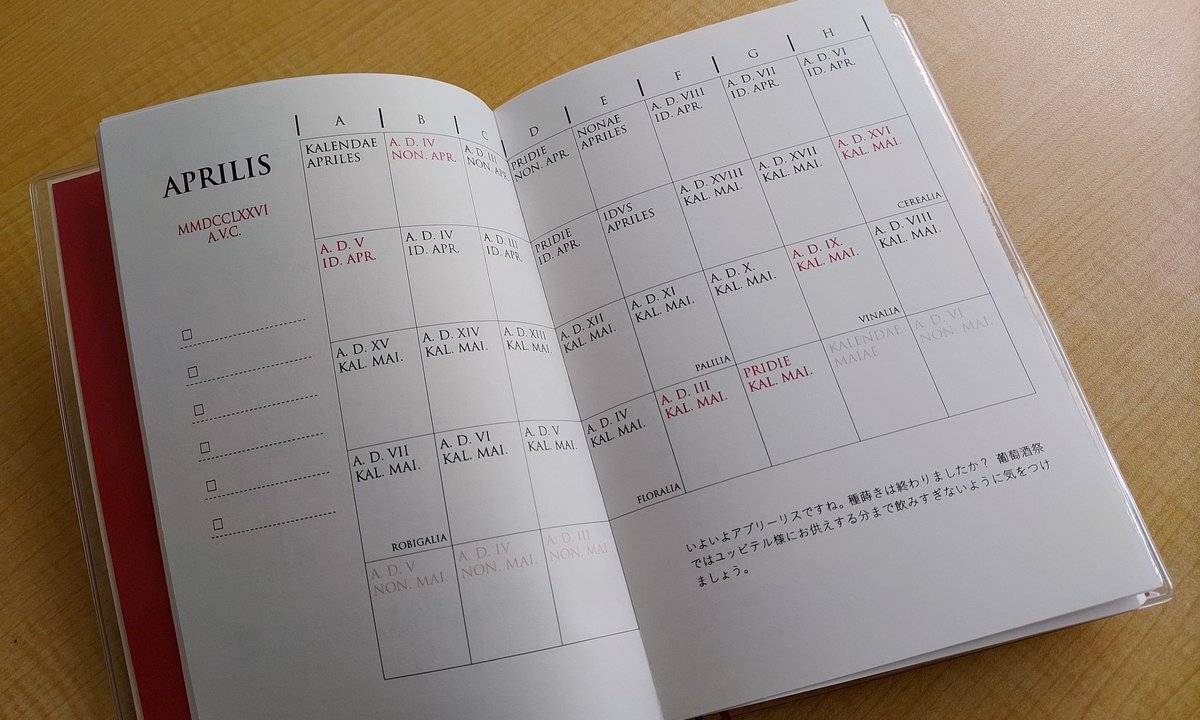 APRILIS
MMDCCLXXVI
A.V.C.
A B C D E F G H
KALENDAE
APRILES
A. D. IV
NON. APR.
A. D. III
NON. APR.
PRIDIE
NON. APR.
NONAE
APRILES
A. D. VIII
ID. APR.
A. D. VII
ID. APR.
A. D. VI
ID. APR.
A. D. V
ID. APR.
A. D. IV
ID. APR.
A. D. III
ID. APR.
PRIDIE
ID. APR.
IDVS
APRILES
A. D. XVIII
KAL. MAI.
A. D. XVII
KAL. MAI.
A. D. XVI
KAL. MAI.
CEREALIA
A. D. XV
KAL. MAI.
A. D. XIV
KAL. MAI.
A. D. XIII
KAL. MAI.
A. D. XII
KAL. MAI.
A. D. XI
KAL. MAI.
PALILIA
A. D. X.
KAL. MAI.
A. D. IX.
KAL. MAI.
VINALIA
A. D. VIII
KAL. MAI.
A. D. VII
KAL. MAI.
ROBIGALIA
A. D. VI
KAL. MAI.
A. D. V
KAL. MAI.
A. D. IV
KAL. MAI.
FLORALIA
A. D. III
KAL. MAI.
PRIDIE
KAL. MAI.
KALENDAE
MAIAE
A. D. VI
NON. MAI.
A. D. V
NON. MAI.
A. D. IV
NON. MAI.
A. D. III
NON. MAI.
いよいよアプリーリスですね。種蒔きは終わりましたか？ 葡萄酒祭
ではユッピテル様にお供えする分まで飲みすぎないように気をつけ
ましょう。